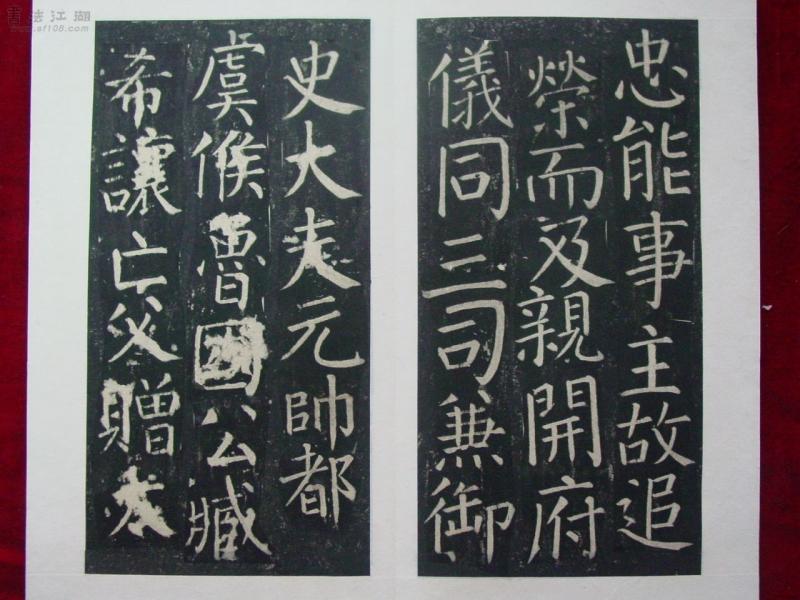 忠能事主故追
榮而及親開府
儀同三司兼御
史大夫元帥都
虞候魯國公臧
希讓亡父贈太
書法江湖
www.sf108.com